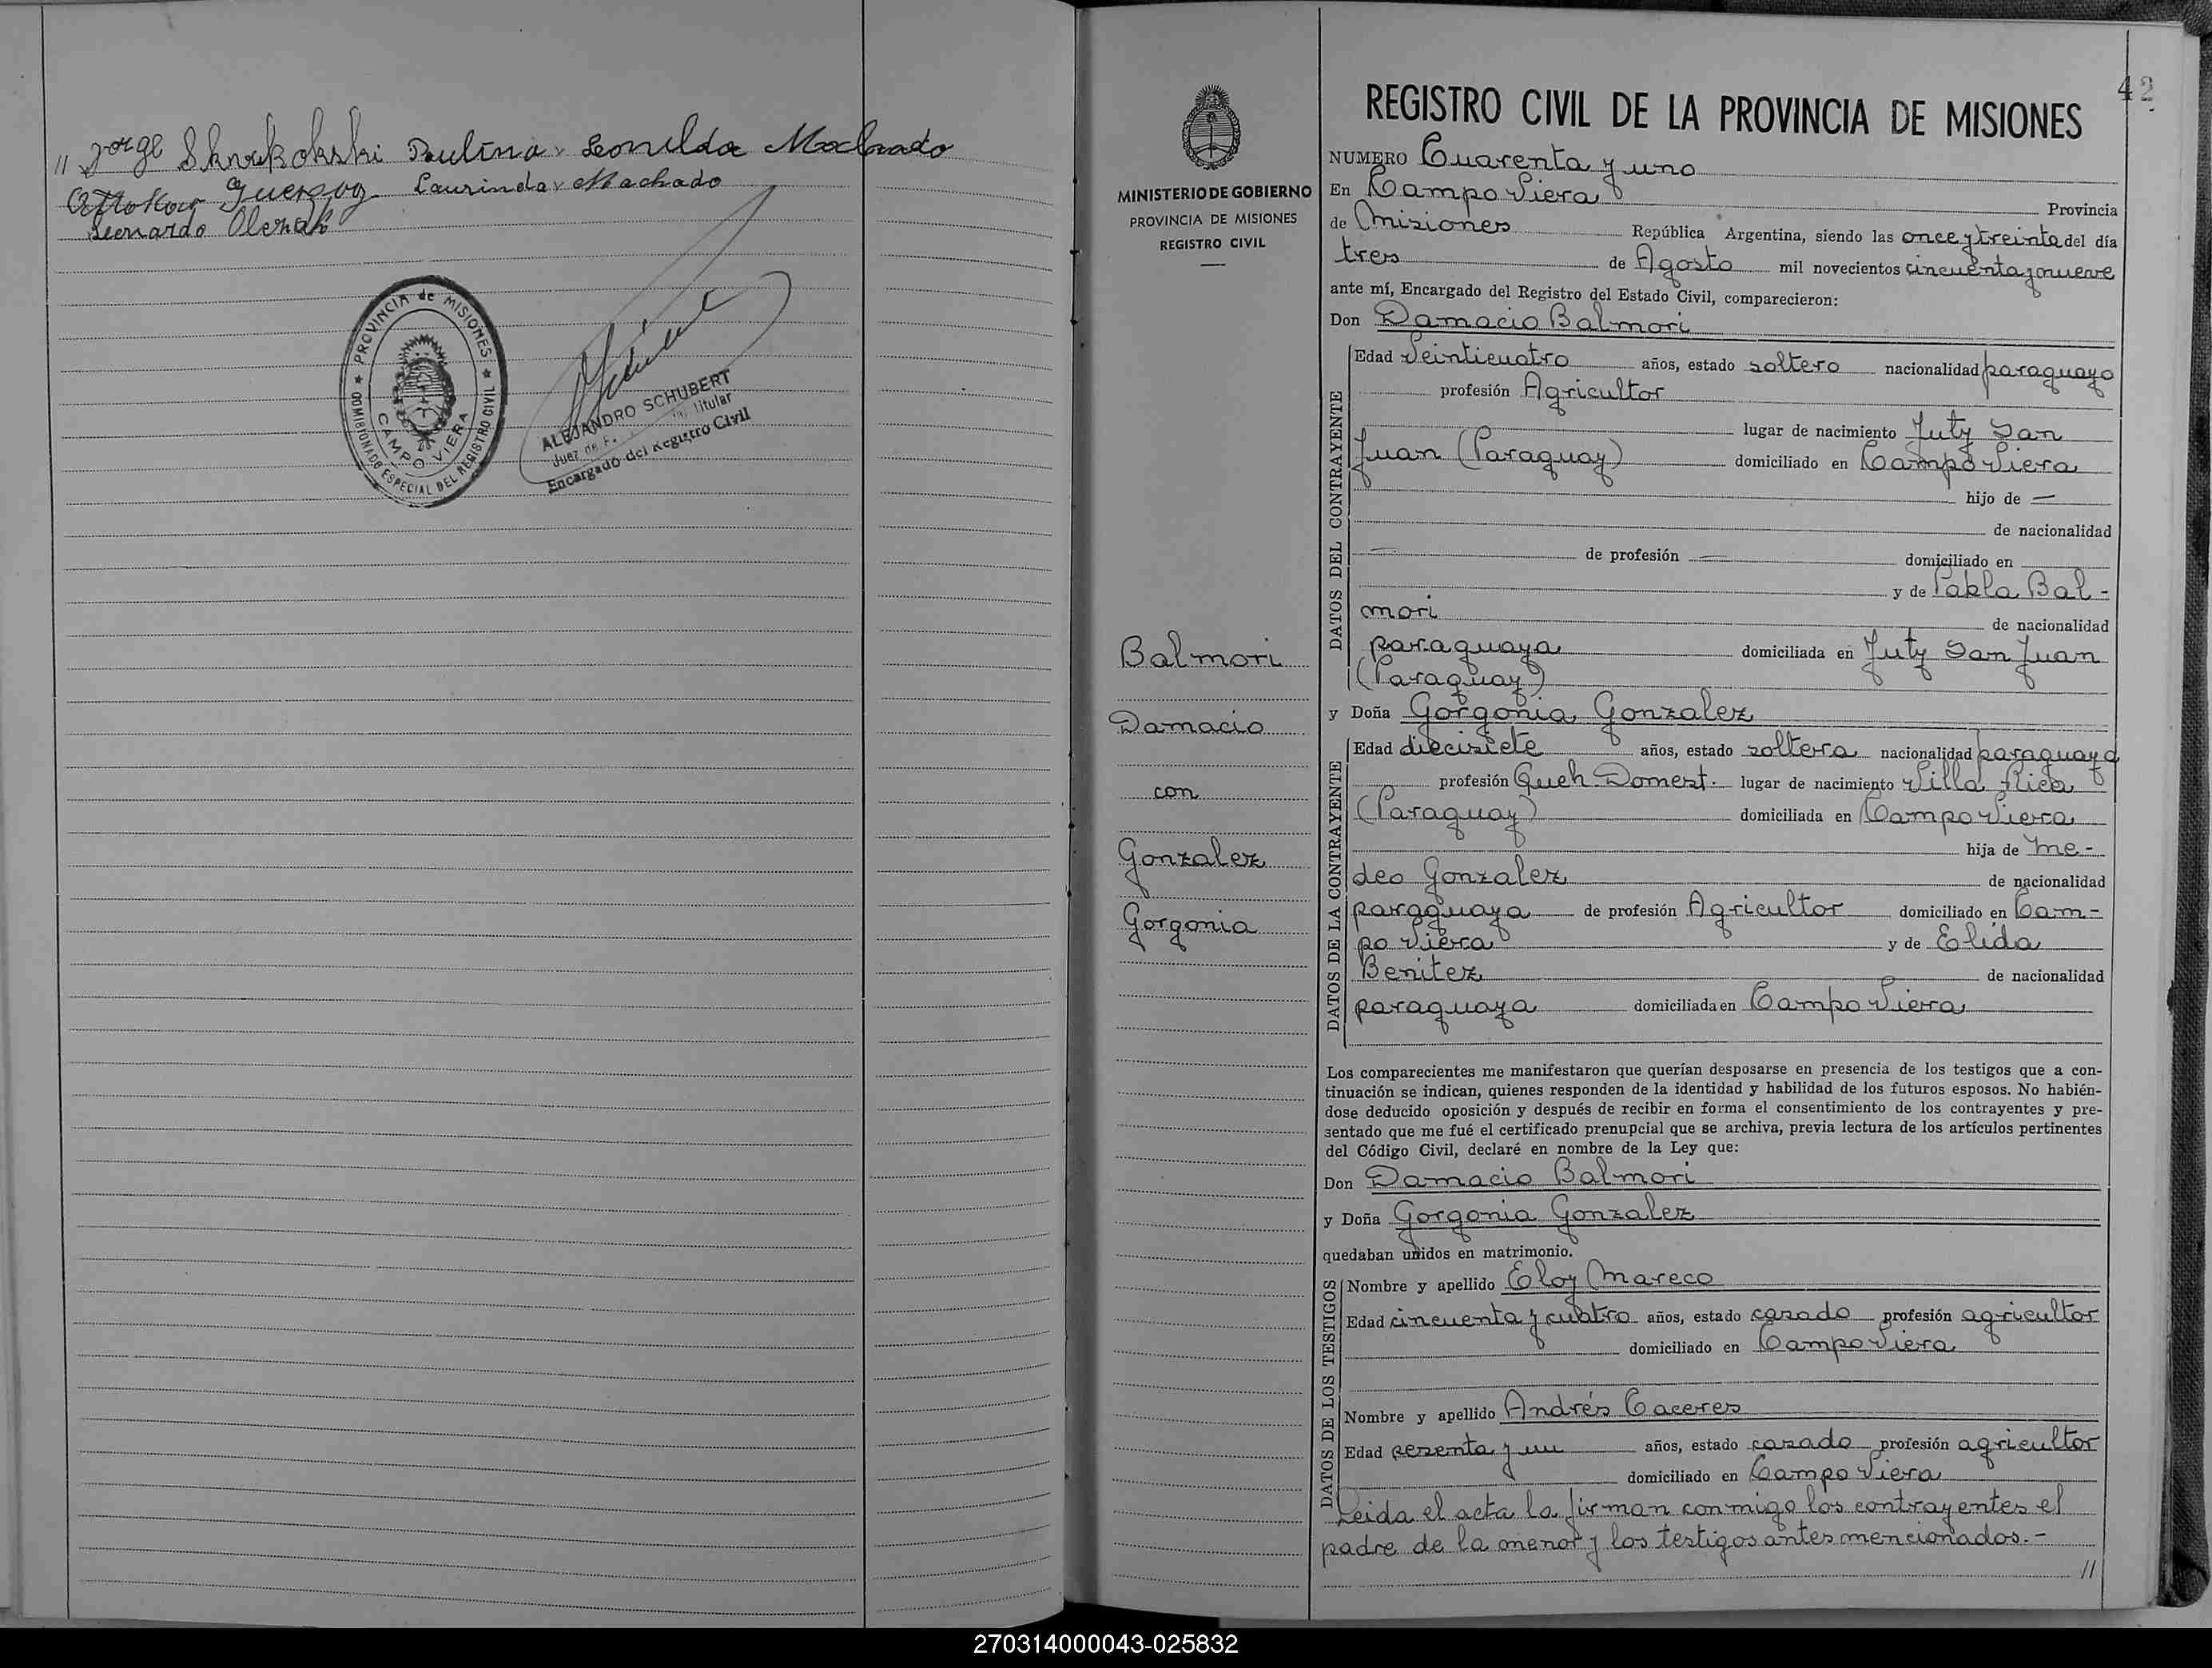 // Jorge Paulina Leonilda Machado
Laurinda Machado
Leonardo
PROVINCIA de MISIONES
COMISIONADO ESPECIAL DEL REGISTRO CIVIL
CAMPO VIERA
ALEJANDRO SCHUBERT
Juez de P. Titular
Encargado del Registro Civil
42
MINISTERIO DE GOBIERNO
PROVINCIA DE MISIONES
REGISTRO CIVIL
Balmori
Damacio
con
Gonzalez
Gorgonia
REGISTRO CIVIL DE LA PROVINCIA DE MISIONES
NUMERO Cuarenta y uno
En Campo Viera Provincia
de Misiones República Argentina, siendo las once y treinta del día
tres de Agosto mil novecientos cincuenta y nueve
ante mí, Encargado del Registro del Estado Civil, comparecieron:
Don Damacio Balmori
DATOS DEL CONTRAYENTE
Edad Veinticuatro años, estado soltero nacionalidad paraguayo
profesión Agricultor
lugar de nacimiento Juty San
Juan (Paraguay) domiciliado en Campo Viera
hijo de —
de nacionalidad
— de profesión — domiciliado en
y de Pabla Bal-
mori de nacionalidad
paraguaya domiciliada en Juty San Juan
(Paraguay)
y Doña Gorgonia Gonzalez
DATOS DE LA CONTRAYENTE
Edad diecisiete años, estado soltera nacionalidad paraguaya
profesión Queh. Domest. lugar de nacimiento Villa Rica
(Paraguay) domiciliada en Campo Viera
hija de Me-
deo Gonzalez de nacionalidad
paraguaya de profesión Agricultor domiciliado en Cam-
po Viera y de Elida
Benitez de nacionalidad
paraguaya domiciliada en Campo Viera
Los comparecientes me manifestaron que querían desposarse en presencia de los testigos que a con-
tinuación se indican, quienes responden de la identidad y habilidad de los futuros esposos. No habién-
dose deducido oposición y después de recibir en forma el consentimiento de los contrayentes y pre-
sentado que me fué el certificado prenupcial que se archiva, previa lectura de los artículos pertinentes
del Código Civil, declaré en nombre de la Ley que:
Don Damacio Balmori
y Doña Gorgonia Gonzalez
quedaban unidos en matrimonio.
DATOS DE LOS TESTIGOS
Nombre y apellido Eloy Mareco
Edad cincuenta y cuatro años, estado casado profesión agricultor
domiciliado en Campo Viera
Nombre y apellido Andrés Caceres
Edad sesenta y un años, estado casado profesión agricultor
domiciliado en Campo Viera
Leida el acta la firman conmigo los contrayentes el
padre de la menor y los testigos antes mencionados.-
//
270314000043-025832